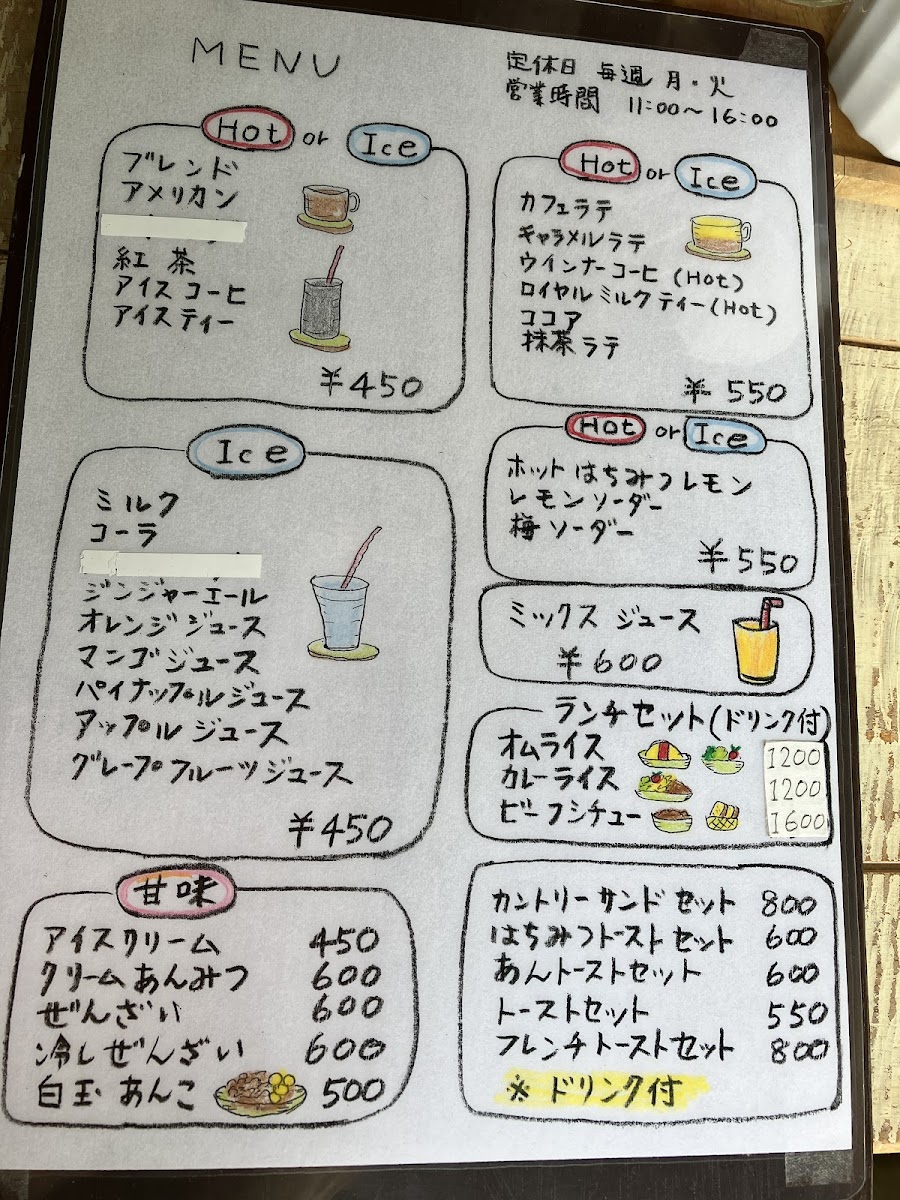 MENU
定休日 毎週 月・火
営業時間 11:00〜16:00
Hot or Ice
ブレンド
アメリカン
紅茶
アイスコーヒ
アイスティー
¥450
Hot or Ice
カフェラテ
キャラメルラテ
ウインナーコーヒ (Hot)
ロイヤルミルクティー(Hot)
ココア
抹茶ラテ
¥550
Ice
ミルク
コーラ
ジンジャーエール
オレンジジュース
マンゴジュース
パイナップルジュース
アップルジュース
グレープフルーツジュース
¥450
Hot or Ice
ホットはちみつレモン
レモンソーダー
梅ソーダー
¥550
ミックスジュース
¥600
ランチセット(ドリンク付)
オムライス 1200
カレーライス 1200
ビーフシチュー 1600
甘味
アイスクリーム 450
クリームあんみつ 600
ぜんざい 600
冷しぜんざい 600
白玉あんこ 500
カントリーサンドセット 800
はちみつトーストセット 600
あんトーストセット 600
トーストセット 550
フレンチトーストセット 800
※ ドリンク付